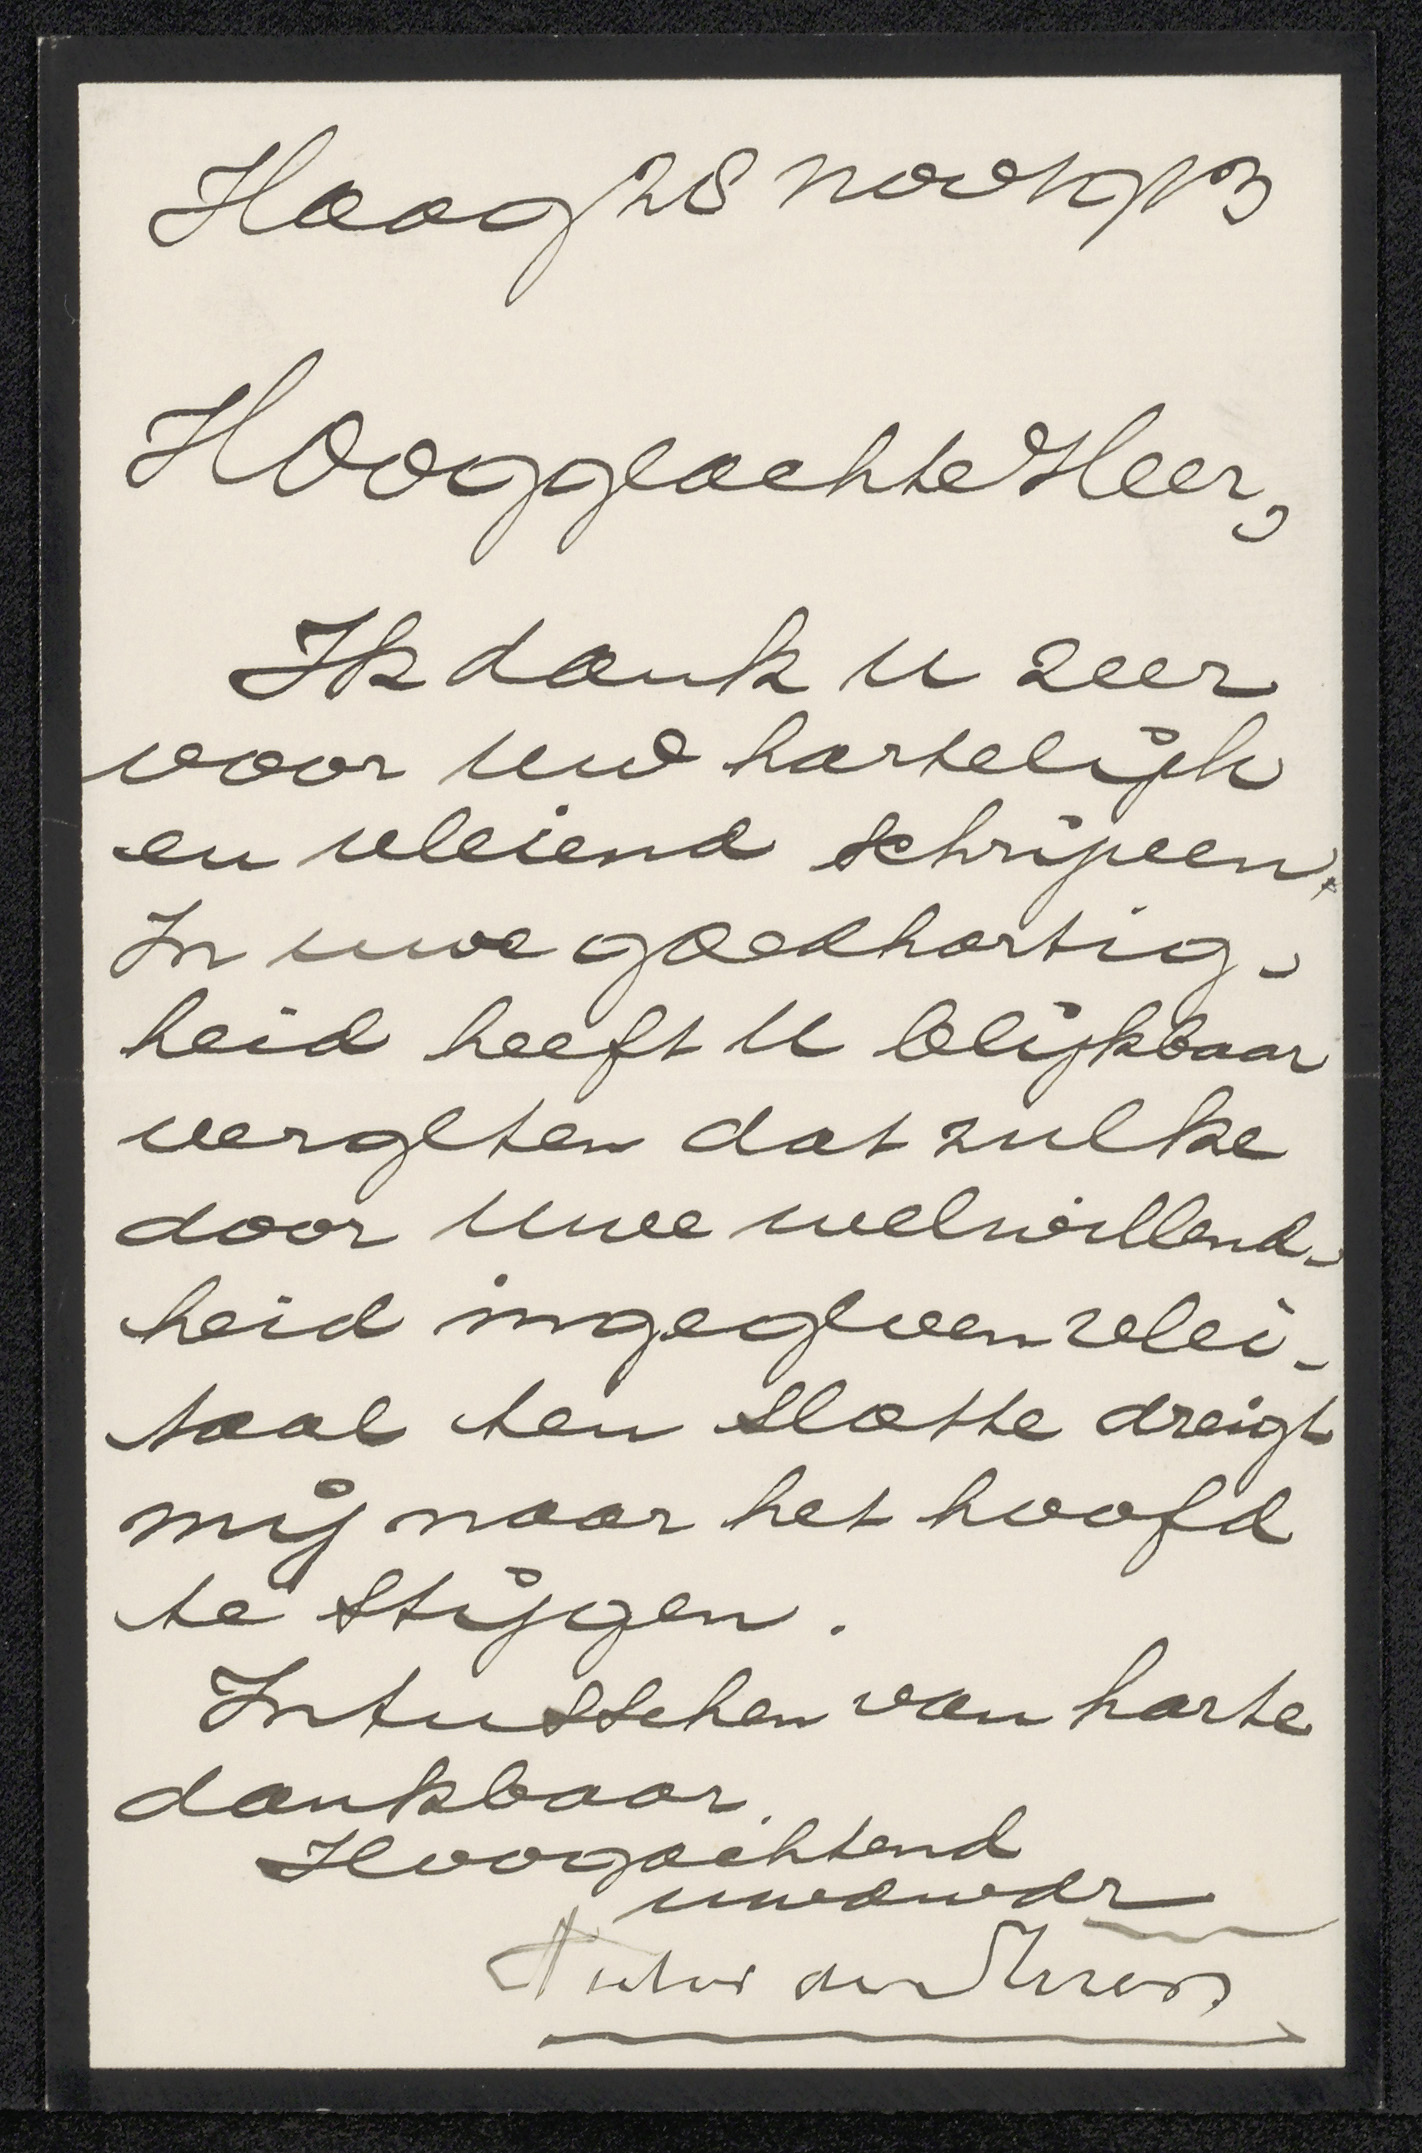 Haag 28 Nov 1913
Hooggeachte Heer,
Ik dank u zeer
voor uw hartelijk
en vleiend schrijven.
In uwe goedhartig-
heid heeft U blijkbaar
vergeten dat zulke
door Uwe welwillend-
heid ingegeven vlei-
taal ten slotte dreigt
mij naar het hoofd
te stijgen.
Intusschen van harte
dankbaar.
Hoogachtend